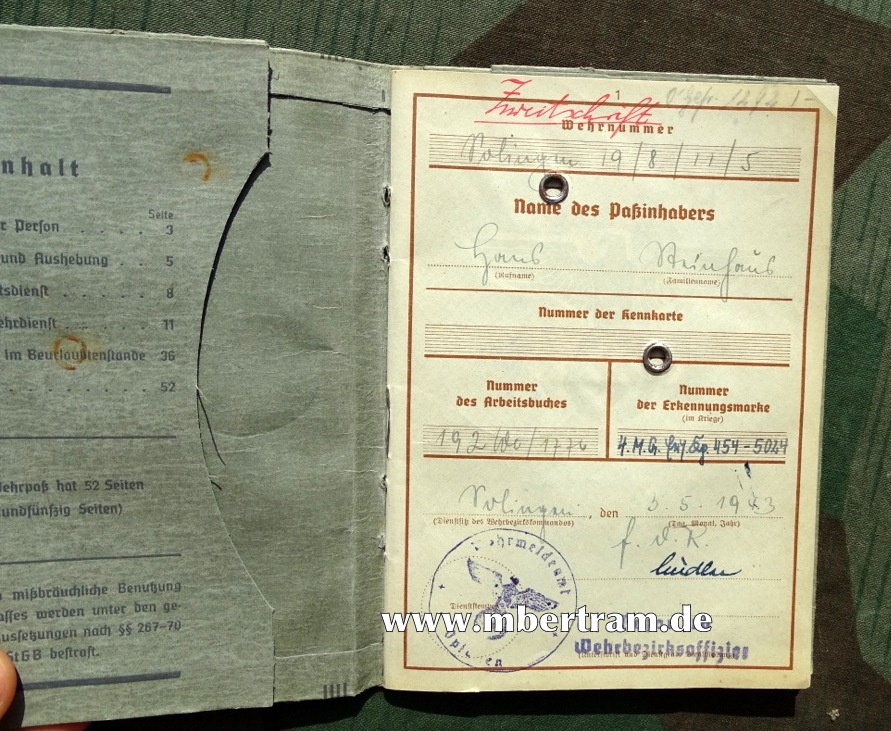 nhalt
Seite
r Person . . . . 3
und Aushebung . . . 5
tsdienst . . . . 8
ehrdienst . . . . 11
im Beurlaubtenstande 36
. . . . 52
ehrpaß hat 52 Seiten
undfünfzig Seiten)
mißbräuchliche Benutzung
asses werden unter den ge-
ussetzungen nach §§ 267–70
StGB bestraft.
1
Zweitschrift
Wehrnummer
Solingen 19/8/11/5
Name des Paßinhabers
Hans Steinhaus
(Rufname) (Familienname)
Nummer der Kennkarte
Nummer
des Arbeitsbuches
Nummer
der Erkennungsmarke
(im Kriege)
454-5024
Solingen, den 3.5.1943
(Dienstsitz des Wehrbezirkskommandos) (Tag, Monat, Jahr)
Wehrmeldeamt
www.mbertram.de
Wehrbezirksoffizier